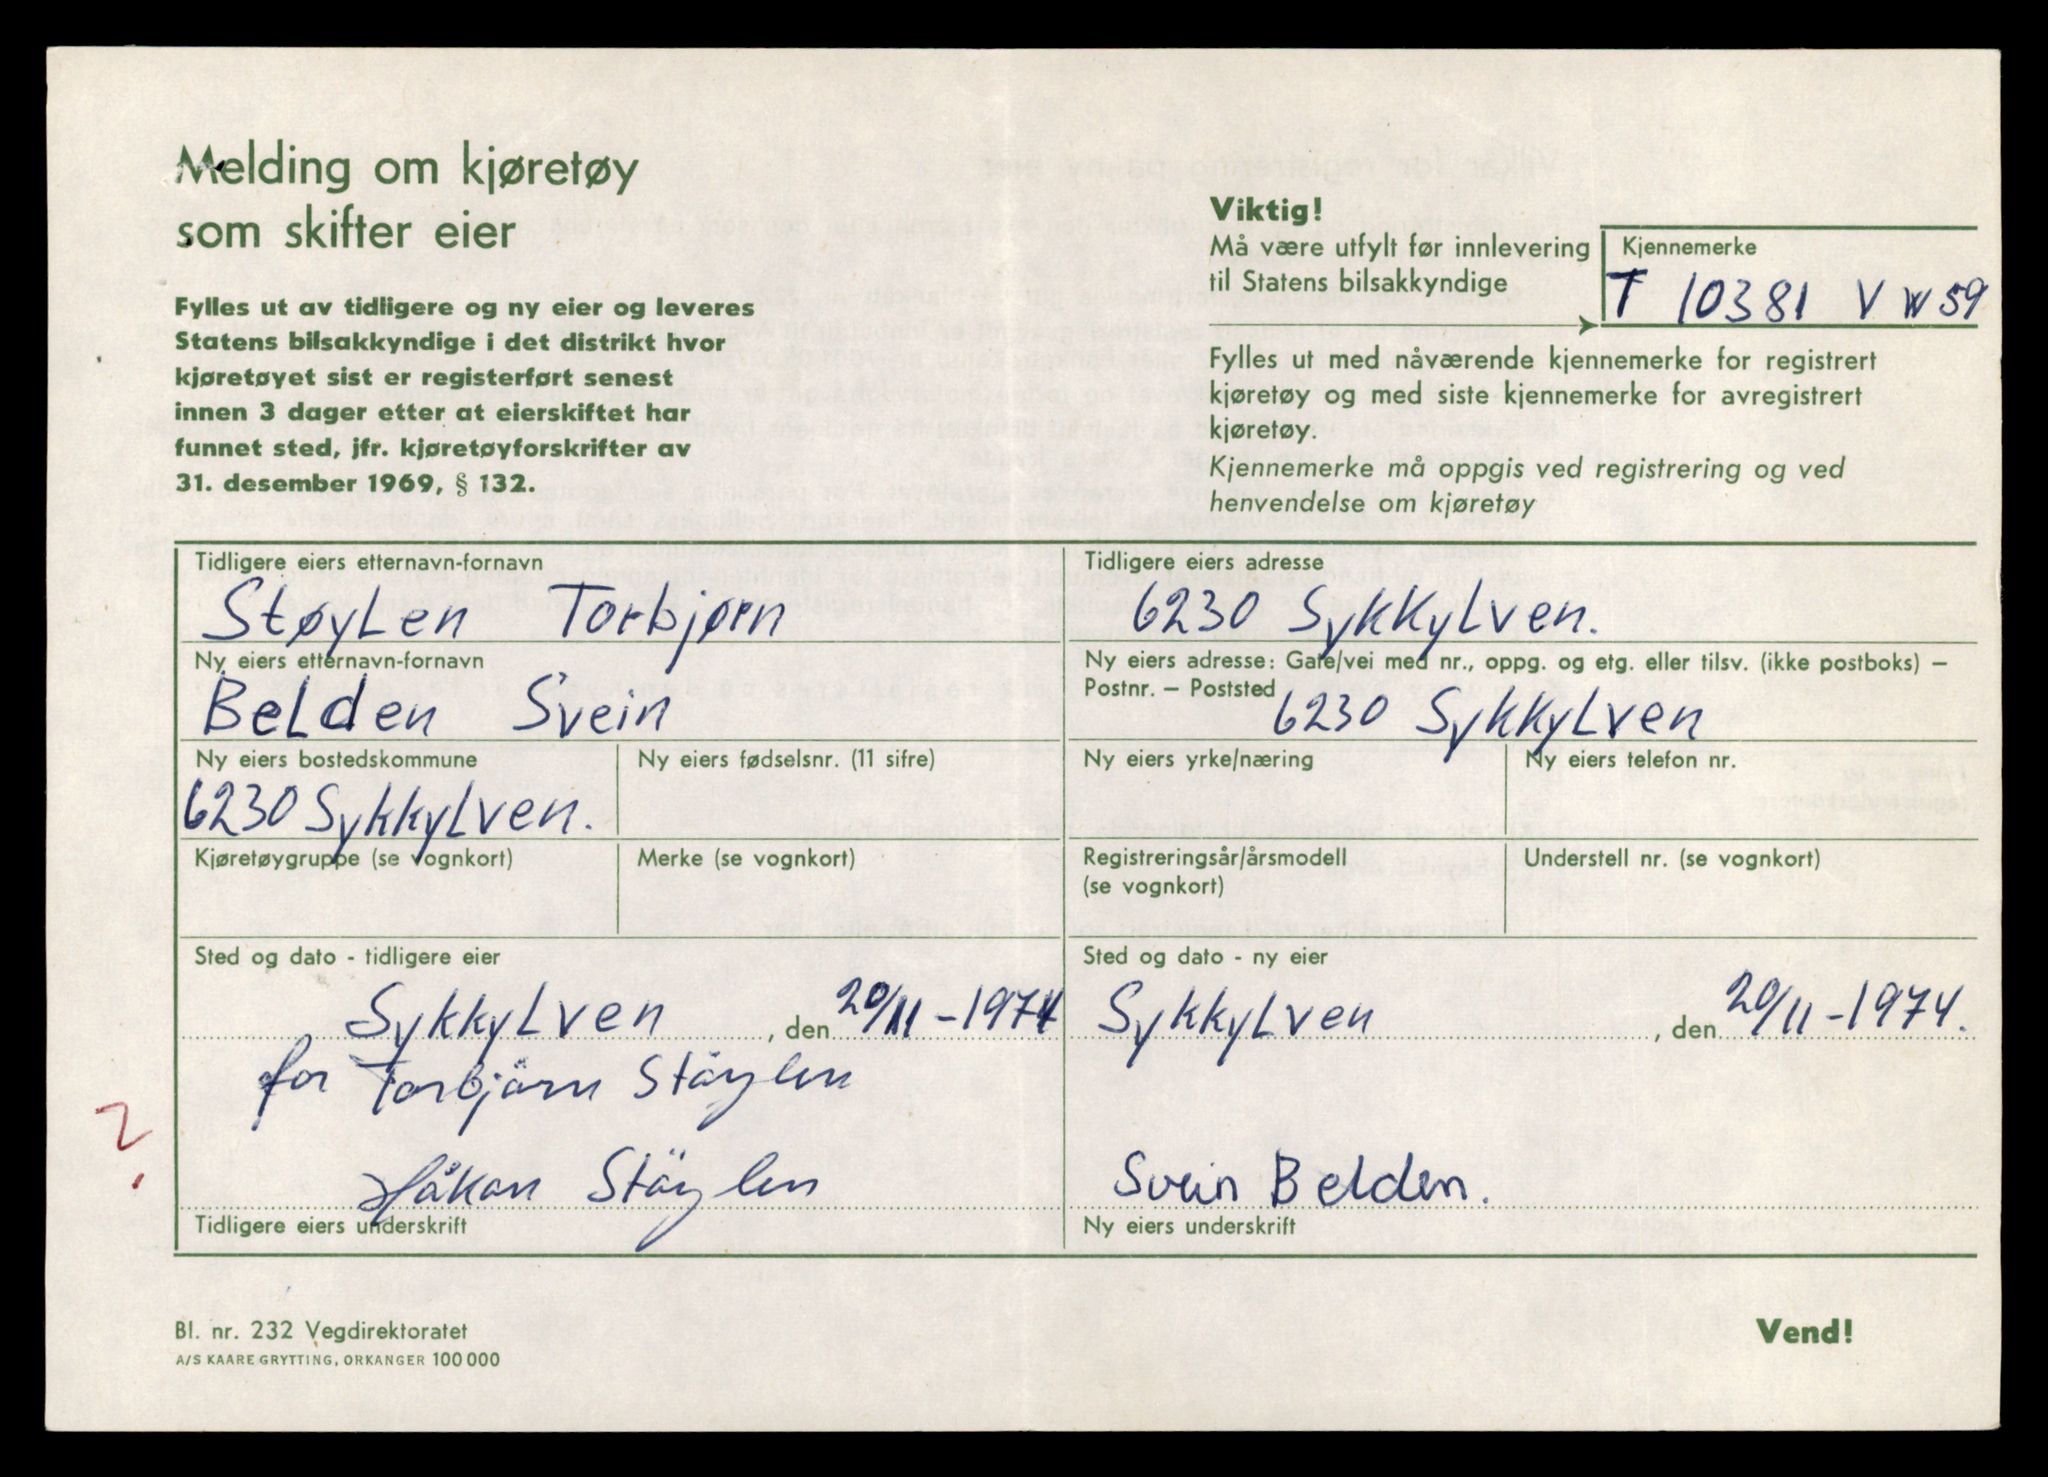 Melding om kjøretøy
som skifter eier
Fylles ut av tidligere og ny eier og leveres
Statens bilsakkyndige i det distrikt hvor
kjøretøyet sist er registerført senest
innen 3 dager etter at eierskiftet har
funnet sted, jfr. kjøretøyforskrifter av
31. desember 1969, § 132.
Viktig!
Må være utfylt før innlevering
til Statens bilsakkyndige
Kjennemerke
T 10381 VW 59
Fylles ut med nåværende kjennemerke for registrert
kjøretøy og med siste kjennemerke for avregistrert
kjøretøy.
Kjennemerke må oppgis ved registrering og ved
henvendelse om kjøretøy
Tidligere eiers etternavn-fornavn
Støylen Torbjørn
Tidligere eiers adresse
6230 Sykkylven.
Ny eiers etternavn-fornavn
Belden Svein
Ny eiers adresse: Gate/vei med nr., oppg. og etg. eller tilsv. (ikke postboks) –
Postnr. – Poststed
6230 Sykkylven
Ny eiers bostedskommune
6230 Sykkylven.
Ny eiers fødselsnr. (11 sifre)
Ny eiers yrke/næring
Ny eiers telefon nr.
Kjøretøygruppe (se vognkort)
Merke (se vognkort)
Registreringsår/årsmodell
(se vognkort)
Understell nr. (se vognkort)
Sted og dato - tidligere eier
Sykkylven, den 20/11-1974
for Torbjörn Stöylen
Håkon Stöylen
Tidligere eiers underskrift
Sted og dato - ny eier
Sykkylven, den 20/11-1974.
Svein Belden.
Ny eiers underskrift
?
Bl. nr. 232 Vegdirektoratet
A/S KAARE GRYTTING, ORKANGER 100 000
Vend!